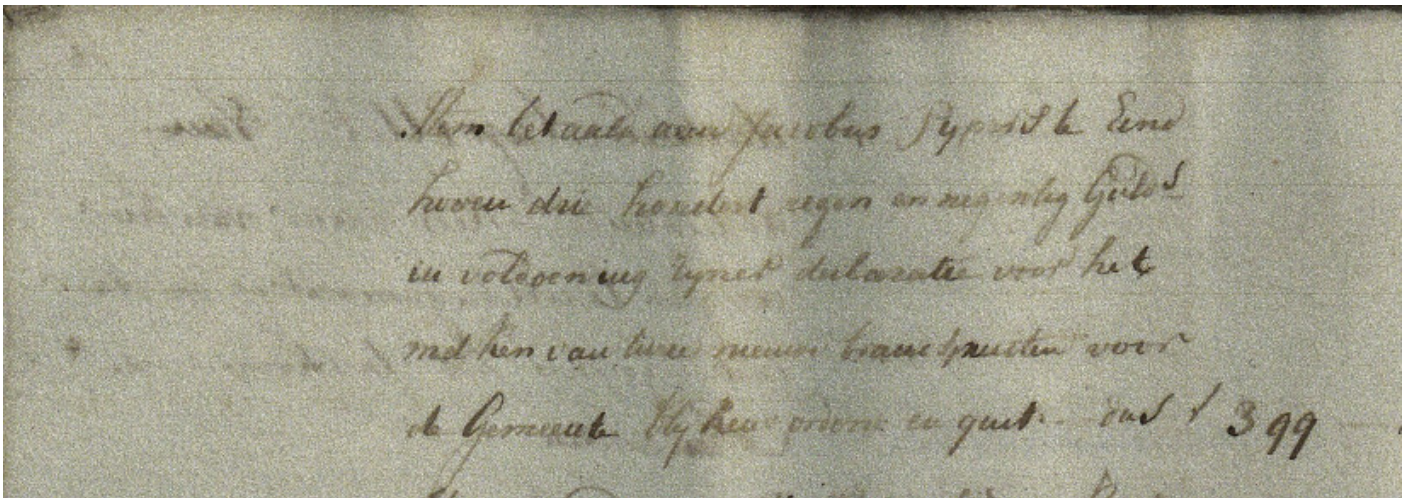 Item betaald aan Jacobus Pypers te Eind
hoven drie hondert negen en negentig Guld.s
in voldoening zyner declaratie voor het
maken van twee nieuwe brandspuiten voor
de Gemeente ordone en quit. dus f 399